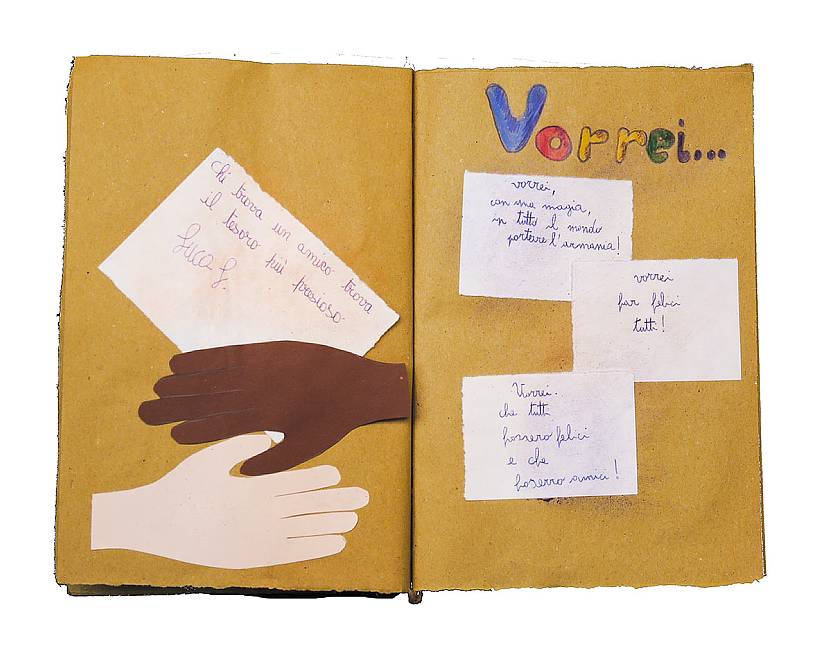 chi trova un amico trova
il tesoro più presioso
Luca G.
Vorrei...
vorrei,
con una magia,
in tutto il mondo
portare l'armania!
vorrei
far felici
tutti!
Vorrei.
che tutti
fossero felici
e che
fosserro amici!